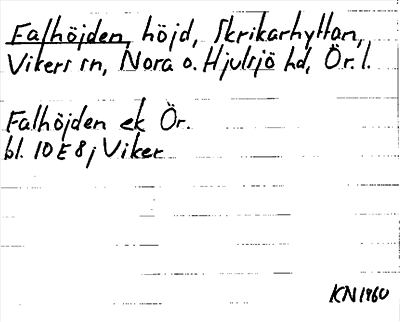 Falhöjden, höjd, Skrikarhyttan,
Vikers sn, Nora o. Hjulsjö hd, Ör. l.
Falhöjden ek Ör.
bl. 10 E 8 j Viker
KN 1960